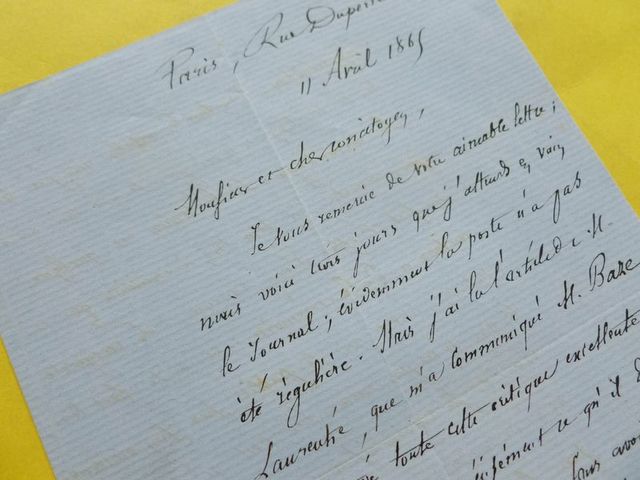 Paris, Rue Duperré
11 Avril 1865
Monsieur et cher concitoyen,
Je vous remercie de votre aimable lettre ;
mais voici trois jours que j'attends en vain
le Journal ; évidemment la poste n'a pas
été régulière. Mais j'ai lu l'article de M.
Laurentré, que m'a communiqué M. Baze
toute cette critique excellente
ce qu'il